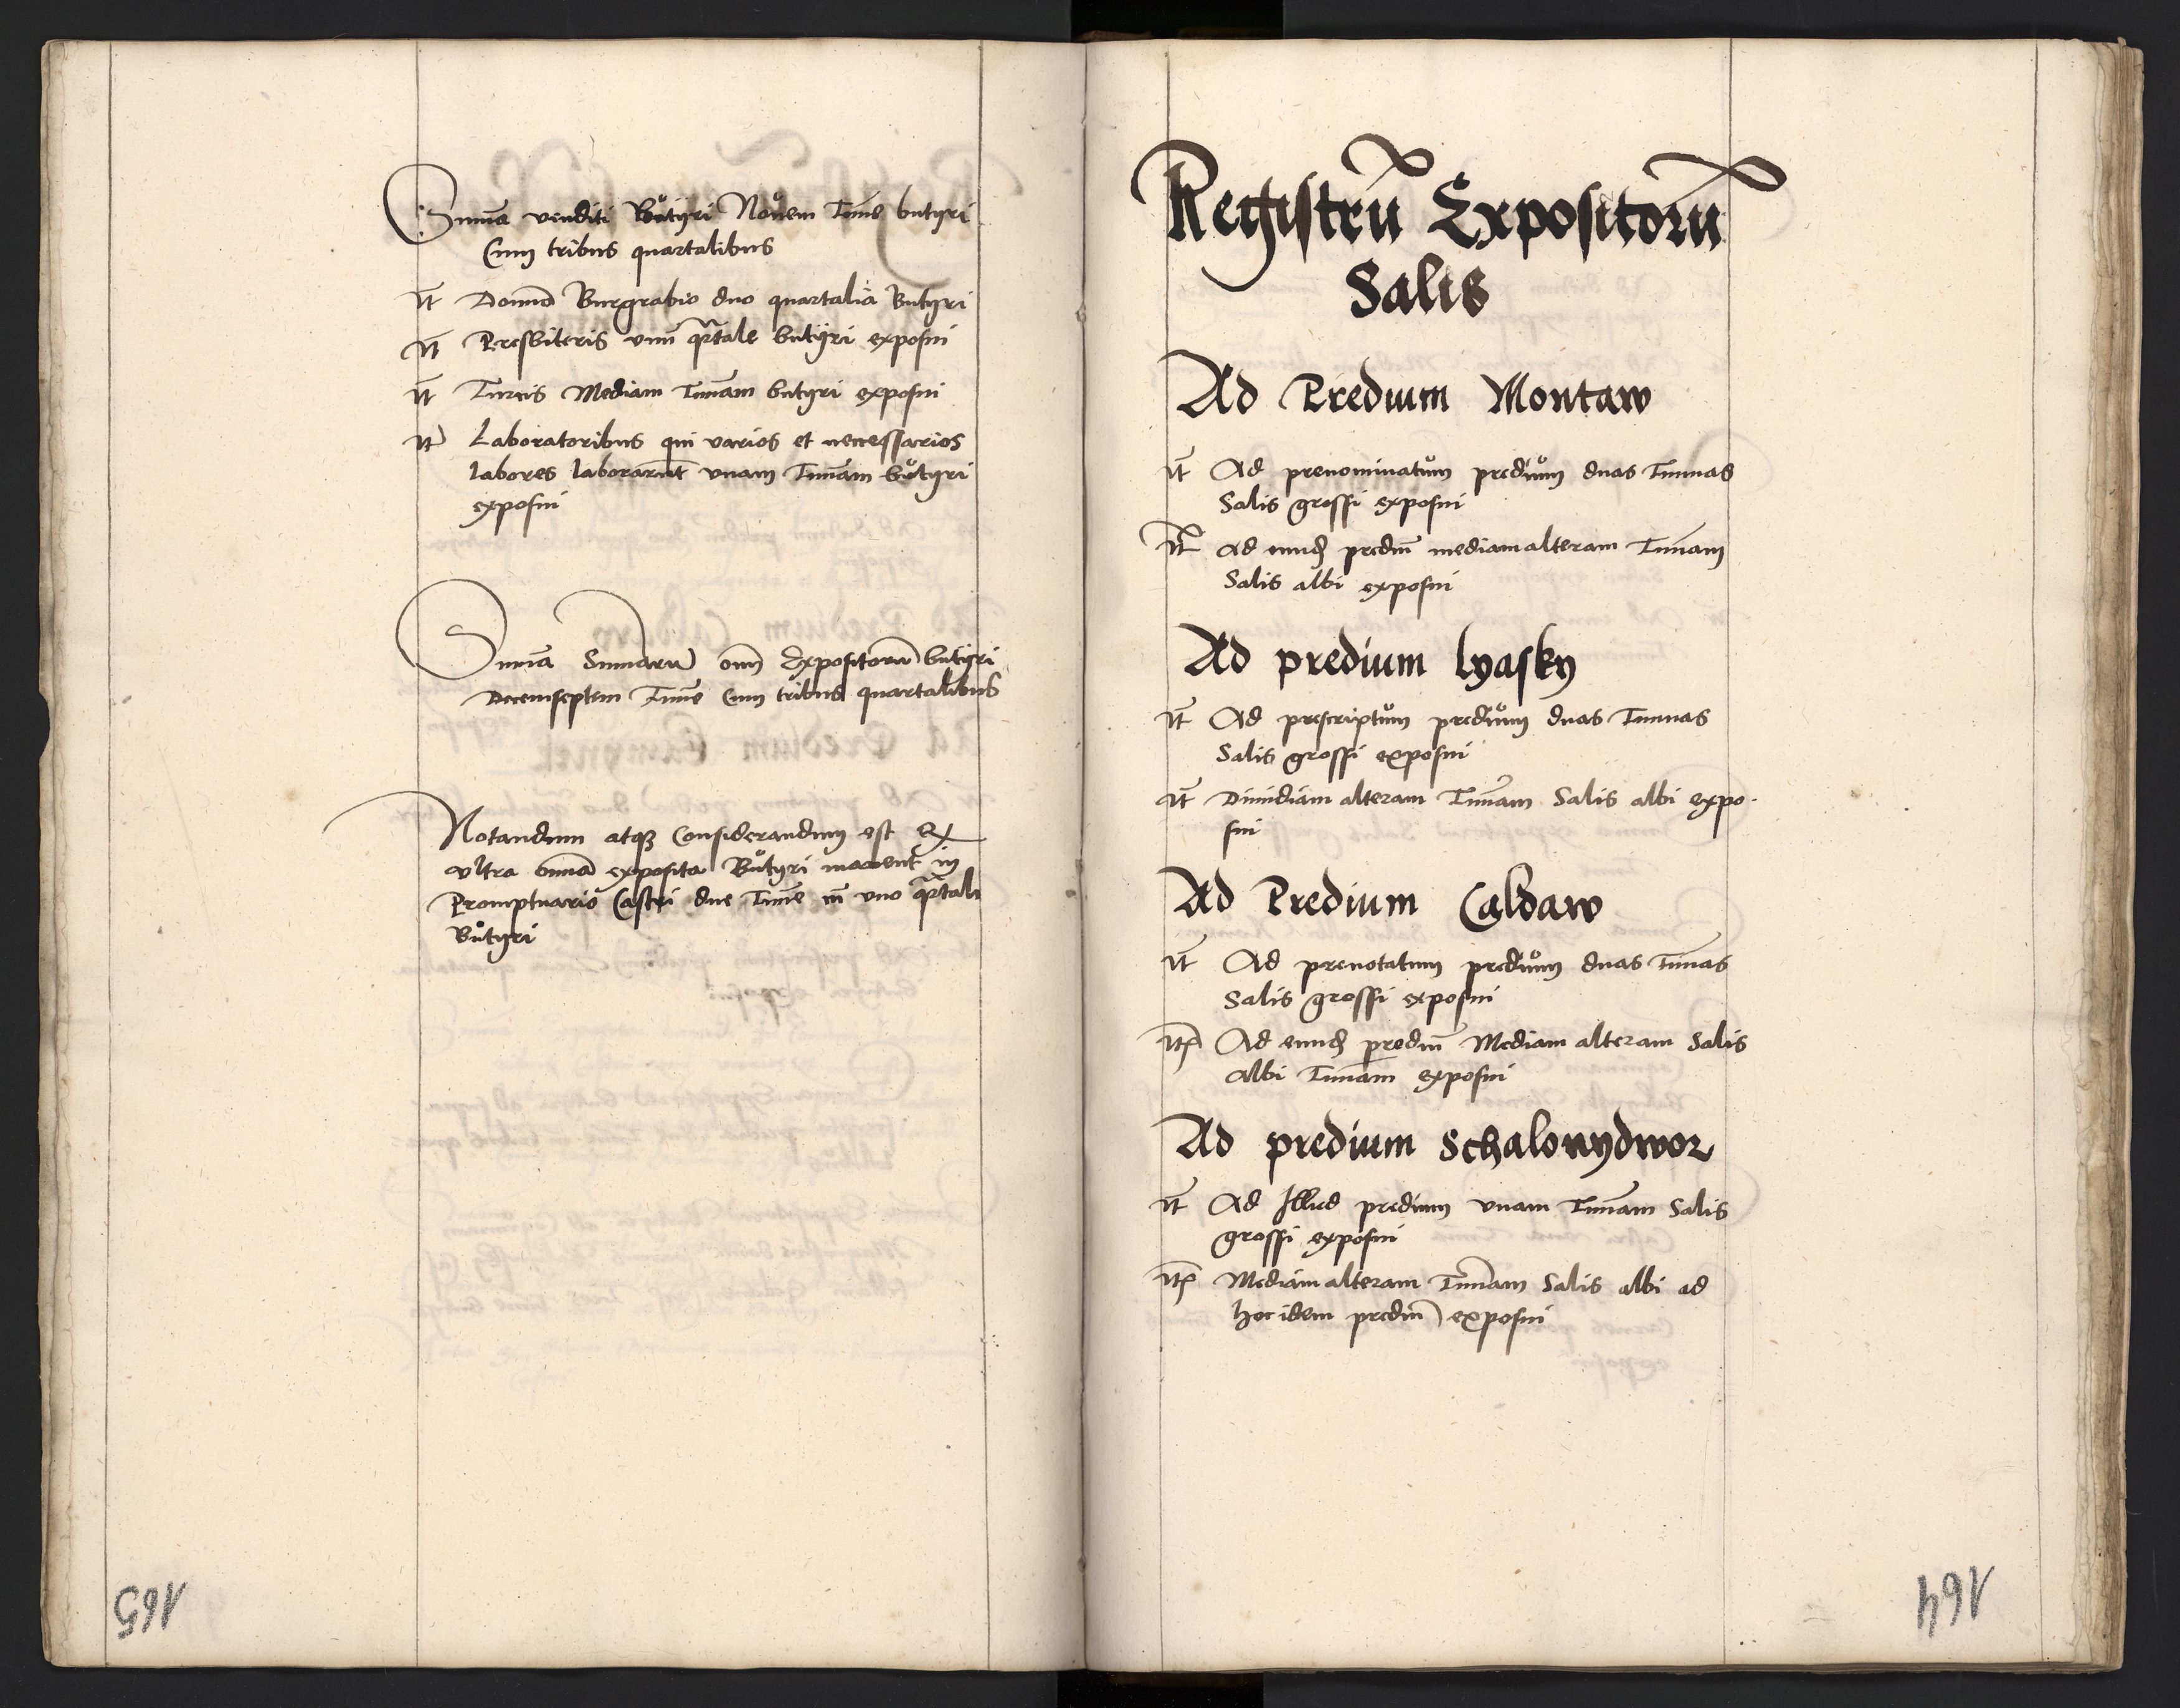 Sum̃a venditi Bůtÿri Noůem Tun̄e butÿri
Cum tribus quartalibus
It̃ Domino Burgrabio duo quartalia Butÿri
It̃ Presbiteris vnum qr̃tale butÿri exposui
It̃ Turcis Mediam Tun̄am butÿri exposui
It̃ Laboratoribus qui varios et necessarios
labores laborarũt vnam Tun̄am bůtÿri
exposui
Sum̃a Summarũ om̃ Expositorũ butÿri
Decemseptem Tun̄e Cum tribus quartalibus
Notandum atqꝫ Considerandum est
vltra omnia exposita Bůtÿri manent in
Promptuario Castri due Tun̄e cũ vno qr̃tali
Bůtÿri
165
Registrũ Expositorũ
Salis
Ad Predium Montaw
It̃ Ad prenominatům prediům duas Tunnas
Salis grossi exposui
It̃ Ad eundẽ prediũ mediam alteram Tun̄am
Salis albi exposui
Ad predium lyasky
It̃ Ad prescriptům prediům duas Tunnas
Salis grossi exposui
It̃ Dimidiam alteram Tun̄am Salis albi expo-
sui
Ad Predium Caldaw
It̃ Ad prenotatum prediům duas Tun̄as
Salis grossi exposui
It̃ Ad eundẽ prediũ Mediam alteram Salis
albi Tun̄am exposui
Ad predium Schalonydwor
It̃ Ad Illud predium vnam Tun̄am Salis
grossi exposui
It̃ Mediam alteram Tun̄am Salis albi ad
hoc idem prediũ exposui
164